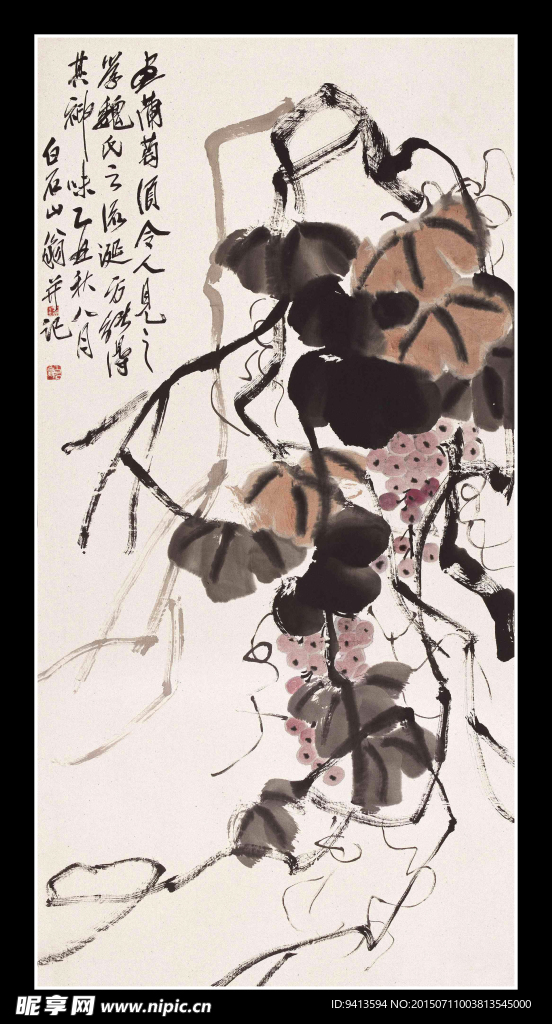 画葡萄须令人见之
学魏氏之流涎方能得
其神味乙丑秋八月
白石山翁并记
昵享网 www.nipic.cn
ID:9413594 NO:20150711003813545000